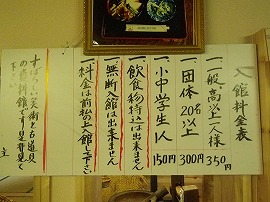 入館料金表
一、一般、高以上一人様 350円
一、団体 20名以上 300円
一、小中学生1人 150円
一、飲食物持込は出来ません
無断入館は出来ません
一、料金は前払の上入館し下さい
すばらしい美術と古道具
の資料館です是非見て
下さい
主